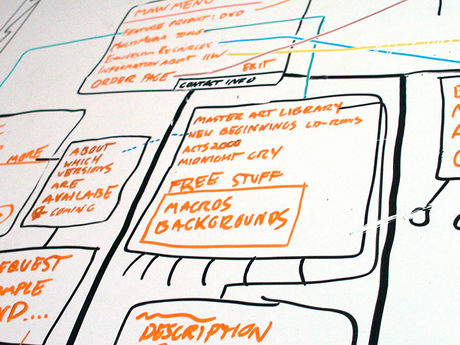 MAIN MENU
FEATURE PRODUCT: DVD
MULTIMEDIA TOOLS
EVANGELISM RESOURCES
INFORMATION ABOUT
ORDER PAGE
EXIT
CONTACT INFO
MORE
ABOUT
WHICH
VERSIONS
ARE
AVAILABLE
COMING
MASTER ART LIBRARY
NEW BEGINNINGS CD-ROMS
ACTS 2000
MIDNIGHT CRY
FREE STUFF
MACROS
BACKGROUNDS
EQUEST
MPLE
VD....
DESCRIPTION